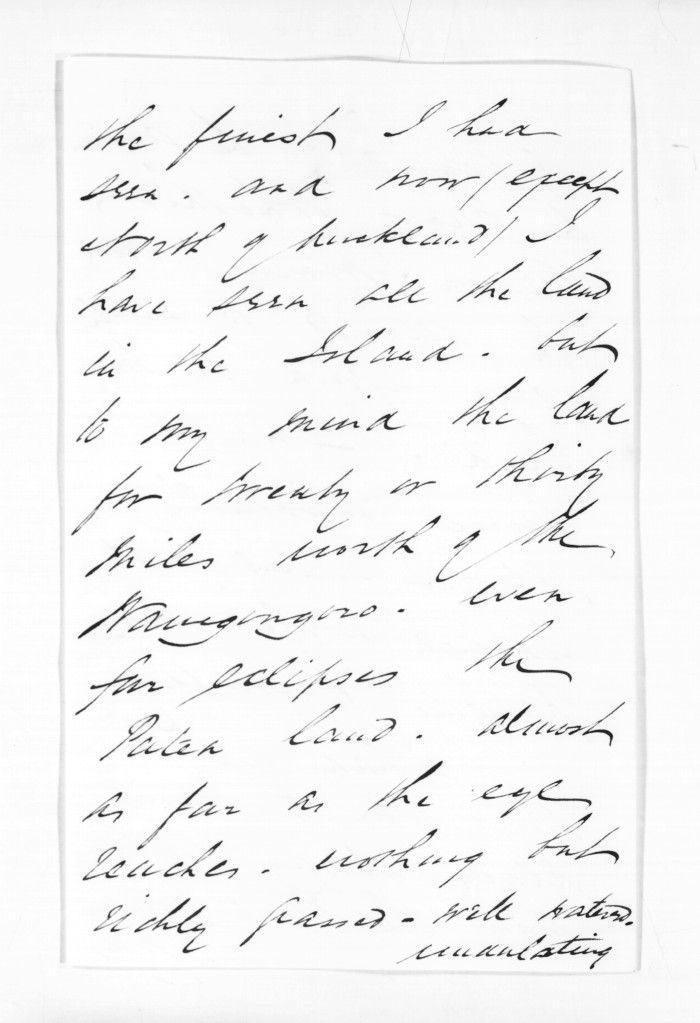 the finest I had
seen. and now (except
North of Auckland) I
have seen all the land
in the Island. but
to my mind the land
for twenty or thirty
miles north of the
Waingongoro. even
far eclipses the
Patea land. almost
as far as the eye
reaches. nothing but
richly grassed - well watered.
undulating